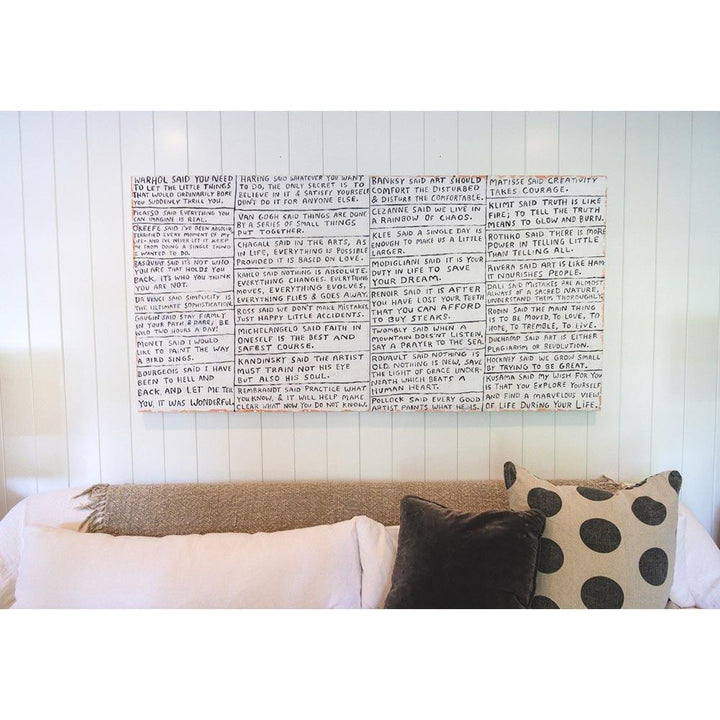 WARHOL SAID YOU NEED
TO LET THE LITTLE THINGS
THAT WOULD ORDINARILY BORE
YOU SUDDENLY THRILL YOU.
PICASSO SAID EVERYTHING YOU
CAN IMAGINE IS REAL.
OKEEFE SAID I'VE BEEN ABSOLUTELY
TERRIFIED EVERY MOMENT OF MY
LIFE- AND I'VE NEVER LET IT KEEP
ME FROM DOING A SINGLE THING
I WANTED TO DO.
BASQUIAT SAID IT'S NOT WHO
YOU ARE THAT HOLDS YOU
BACK, IT'S WHO YOU THINK
YOU ARE NOT.
DA VINCI SAID SIMPLICITY IS
THE ULTIMATE SOPHISTICATION.
GAUGUIN SAID STAY FIRMLY
IN YOUR PATH & DARE; BE
WILD TWO HOURS A DAY!
MONET SAID I WOULD
LIKE TO PAINT THE WAY
A BIRD SINGS.
BOURGEOIS SAID I HAVE
BEEN TO HELL AND
BACK, AND LET ME TELL
YOU, IT WAS WONDERFUL.
HARING SAID WHATEVER YOU WANT
TO DO, THE ONLY SECRET IS TO
BELIEVE IN IT & SATISFY YOURSELF
DON'T DO IT FOR ANYONE ELSE.
VAN GOGH SAID THINGS ARE DONE
BY A SERIES OF SMALL THINGS
PUT TOGETHER.
CHAGALL SAID IN THE ARTS, AS
IN LIFE, EVERYTHING IS POSSIBLE
PROVIDED IT IS BASED ON LOVE.
KAHLO SAID NOTHING IS ABSOLUTE.
EVERYTHING CHANGES. EVERYTHING
MOVES, EVERYTHING EVOLVES,
EVERYTHING FLIES & GOES AWAY.
ROSS SAID WE DON'T MAKE MISTAKES
JUST HAPPY LITTLE ACCIDENTS.
MICHELANGELO SAID FAITH IN
ONESELF IS THE BEST AND
SAFEST COURSE.
KANDINSKY SAID THE ARTIST
MUST TRAIN NOT HIS EYE
BUT ALSO HIS SOUL.
REMBRANDT SAID PRACTICE WHAT
YOU KNOW, & IT WILL HELP MAKE
CLEAR WHAT NOW YOU DO NOT KNOW.
BANKSY SAID ART SHOULD
COMFORT THE DISTURBED
& DISTURB THE COMFORTABLE.
CEZANNE SAID WE LIVE IN
A RAINBOW OF CHAOS.
KLEE SAID A SINGLE DAY IS
ENOUGH TO MAKE US A LITTLE
LARGER.
MODIGLIANI SAID IT IS YOUR
DUTY IN LIFE TO SAVE
YOUR DREAM.
RENOIR SAID IT IS AFTER
YOU HAVE LOST YOUR TEETH
THAT YOU CAN AFFORD
TO BUY STEAKS.
TWOMBLY SAID WHEN A
MOUNTAIN DOESN'T LISTEN,
SAY A PRAYER TO THE SEA.
ROUAULT SAID NOTHING IS
OLD, NOTHING IS NEW, SAVE
THE LIGHT OF GRACE UNDER-
NEATH WHICH BEATS A
HUMAN HEART.
POLLOCK SAID EVERY GOOD
ARTIST PAINTS WHAT HE IS.
MATISSE SAID CREATIVITY
TAKES COURAGE.
KLIMT SAID TRUTH IS LIKE
FIRE; TO TELL THE TRUTH
MEANS TO GLOW AND BURN.
ROTHKO SAID THERE IS MORE
POWER IN TELLING LITTLE
THAN TELLING ALL.
RIVERA SAID ART IS LIKE HAM
IT NOURISHES PEOPLE.
DALI SAID MISTAKES ARE ALMOST
ALWAYS OF A SACRED NATURE,
UNDERSTAND THEM THOROUGHLY.
RODIN SAID THE MAIN THING
IS TO BE MOVED, TO LOVE, TO
HOPE, TO TREMBLE, TO LIVE.
DUCHAMP SAID ART IS EITHER
PLAGIARISM OR REVOLUTION.
HOCKNEY SAID WE GROW SMALL
BY TRYING TO BE GREAT.
KUSAMA SAID MY WISH FOR YOU
IS THAT YOU EXPLORE YOURSELF
AND FIND A MARVELOUS VIEW
OF LIFE DURING YOUR LIFE.